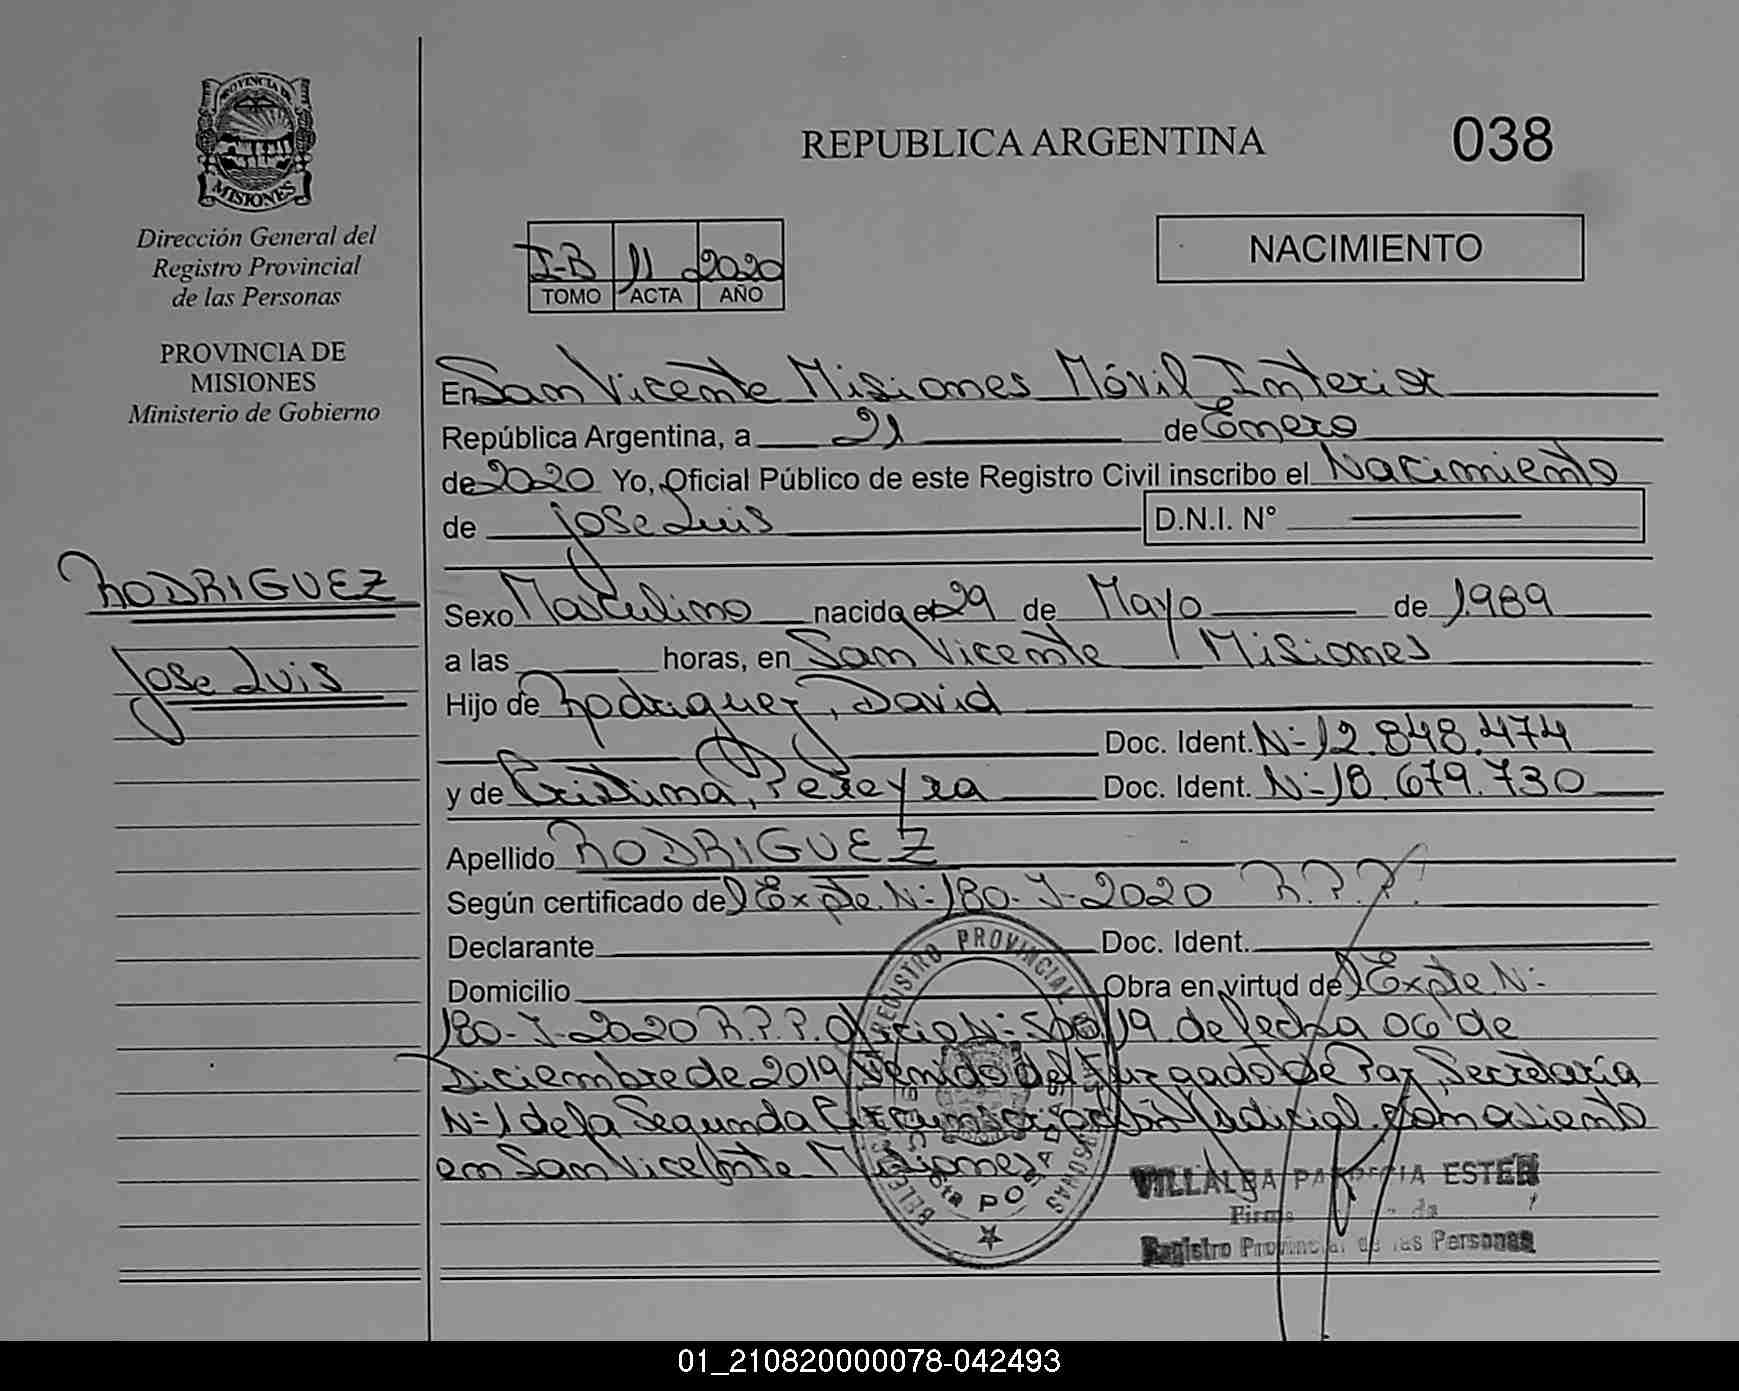 PROVINCIA DE
MISIONES
Dirección General del
Registro Provincial
de las Personas
PROVINCIA DE
MISIONES
Ministerio de Gobierno
RODRIGUEZ
Jose Luis
REPUBLICA ARGENTINA
038
I-B 11 2020
TOMO ACTA AÑO
NACIMIENTO
En San Vicente Misiones Móvil Interior
República Argentina, a 21 de Enero
de 2020 Yo, Oficial Público de este Registro Civil inscribo el Nacimiento
de Jose Luis D.N.I. N°
Sexo Masculino nacido el 29 de Mayo de 1989
a las horas, en San Vicente Misiones
Hijo de Rodriguez, David
Doc. Ident. N- 12.848.474
y de Cristina, Pereyra Doc. Ident. N- 18.679.730
Apellido RODRIGUEZ
Según certificado del Expte. N- 180-J-2020 R.P.P.
Declarante Doc. Ident.
Domicilio Obra en virtud del Expte N-
180-J-2020 R.P.P. Oficio N- /19 de fecha 06 de
Diciembre de 2019 Venido del Juzgado de Paz, Secretaría
N-1 de la Segunda Circunscripción Judicial con asiento
en San Vicente Misiones
REGISTRO PROVINCIAL DE LAS PERSONAS
POSADAS
VILLALBA PATRICIA ESTER
Registro Provincial de las Personas
01_210820000078-042493